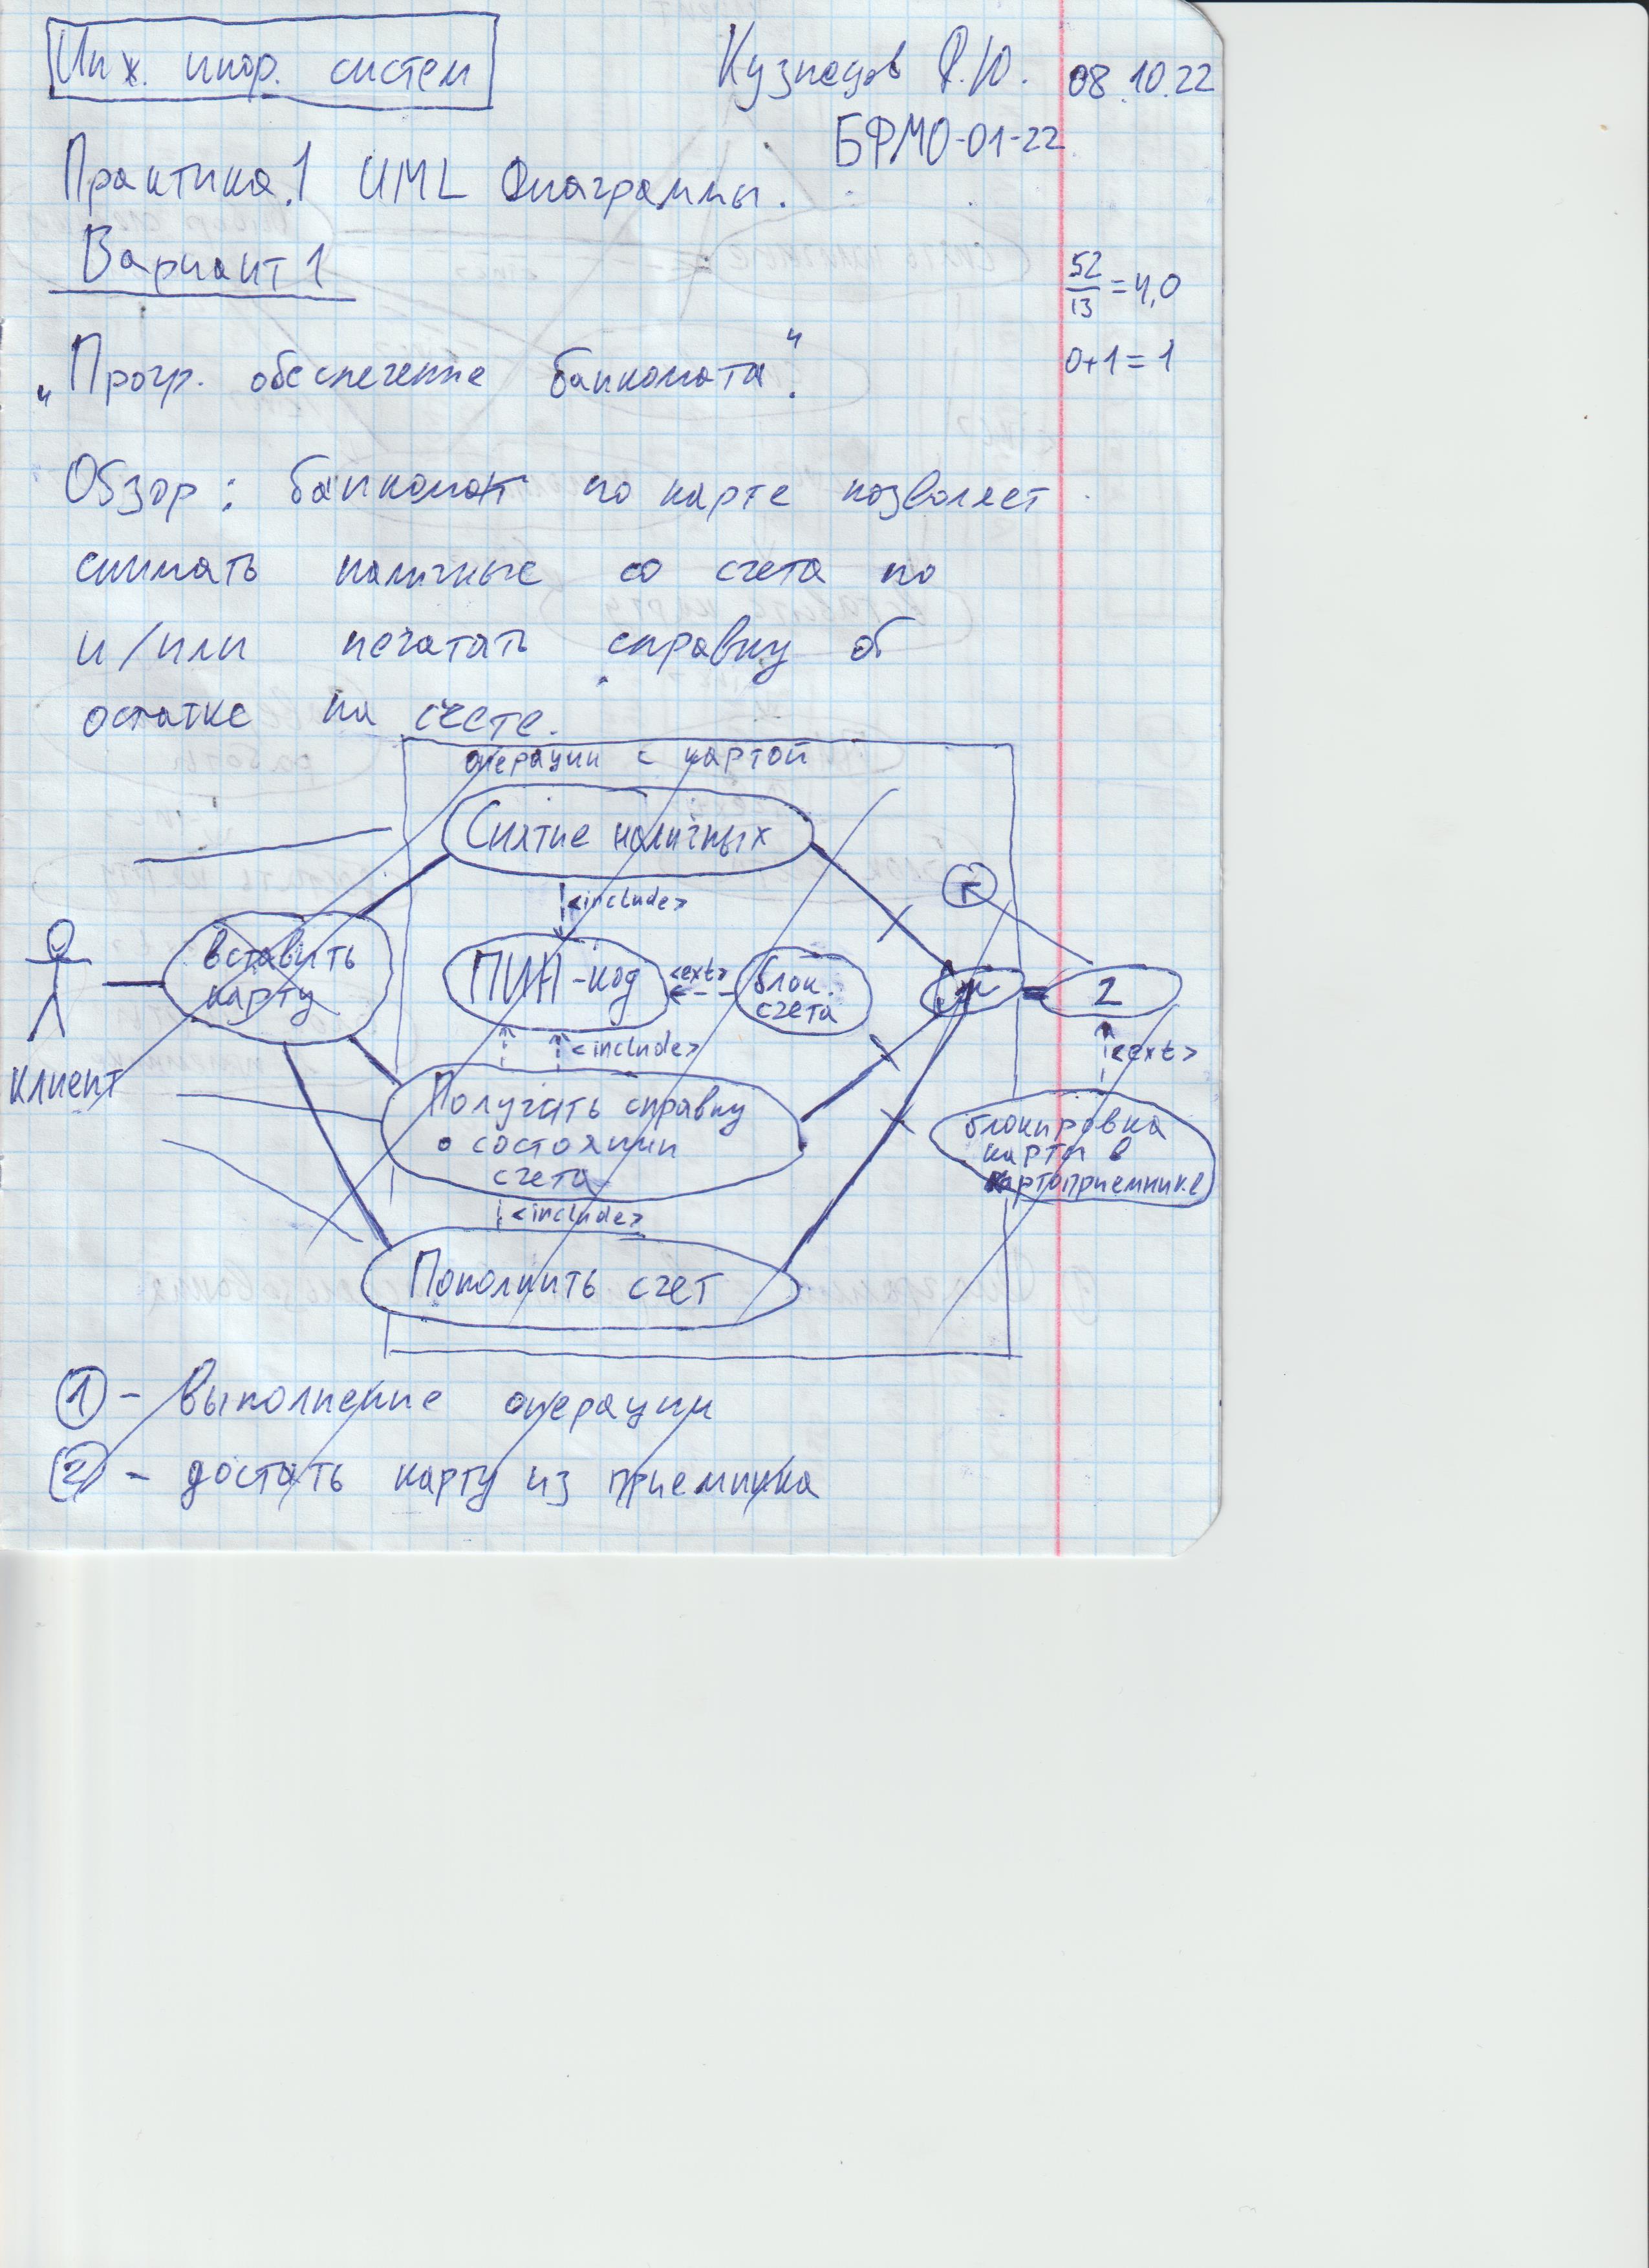 Инж. инфор. систем
Кузнецов Ф.Ю. 08.10.22
БФМО-01-22
Практика.1 UML Диаграммы.
Вариант 1
52
13
=4,0
0+1=1
„Прогр. обеспечение банкомата".
Обзор: банкомат по карте позволяет
снимать наличные со счета по
и/или печатать справку об
остатке на счете.
операции с картой
Снятие наличных
<include>
вставить
карту
ПИН-код
<ext>
блок.
счета
2
<include>
<ext>
Клиент
Получить справку
о состоянии
счета
блокировка
карты в
картоприемнике
<include>
Пополнить счет
1 - выполнение операции
2 - достать карту из приемника